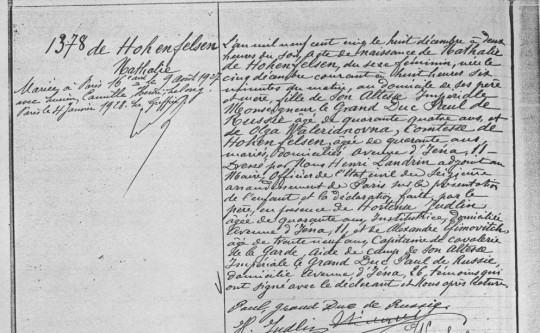 1378 de Hohenfelsen
Nathalie
Mariée à Paris 16e arr le 9 Août 1927
avec Lucien, Camille
Paris le 11 Janvier 1928. Le Greffier
L'an mil neuf cent cinq le huit décembre à deux
heures du soir, Acte de naissance de Nathalie
de Hohenfelsen, du sexe féminin, née le
cinq décembre courant à huit heures six
minutes du matin, au domicile de ses père
et mère, fille de Son Altesse Impériale
Monseigneur le Grand Duc Paul de
Russie âgé de quarante quatre ans, et
de Olga Valerianovna, Comtesse de
Hohenfelsen, âgée de quarante ans
mariés, domiciliés avenue d'Iéna, 11 -
Dressé par Nous Henri Landrin adjoint au
Maire Officier de l'Etat civil du Seizième
arrondissement de Paris sur la présentation
de l'enfant et la déclaration faite par le
père, en présence de Hortense Judlin
âgée de quarante ans Institutrice, domiciliée
avenue d'Iéna, 11, et de Alexandre Efimovitch
âgé de trente neuf ans Capitaine de cavalerie
de la Garde, Aide de camp de Son Altesse
Impériale le Grand Duc Paul de Russie,
domicilié avenue d'Iéna, 26, témoins qui
ont signé avec le déclarant et Nous après lecture
Paul, grand Duc de Russie
H. Judlin